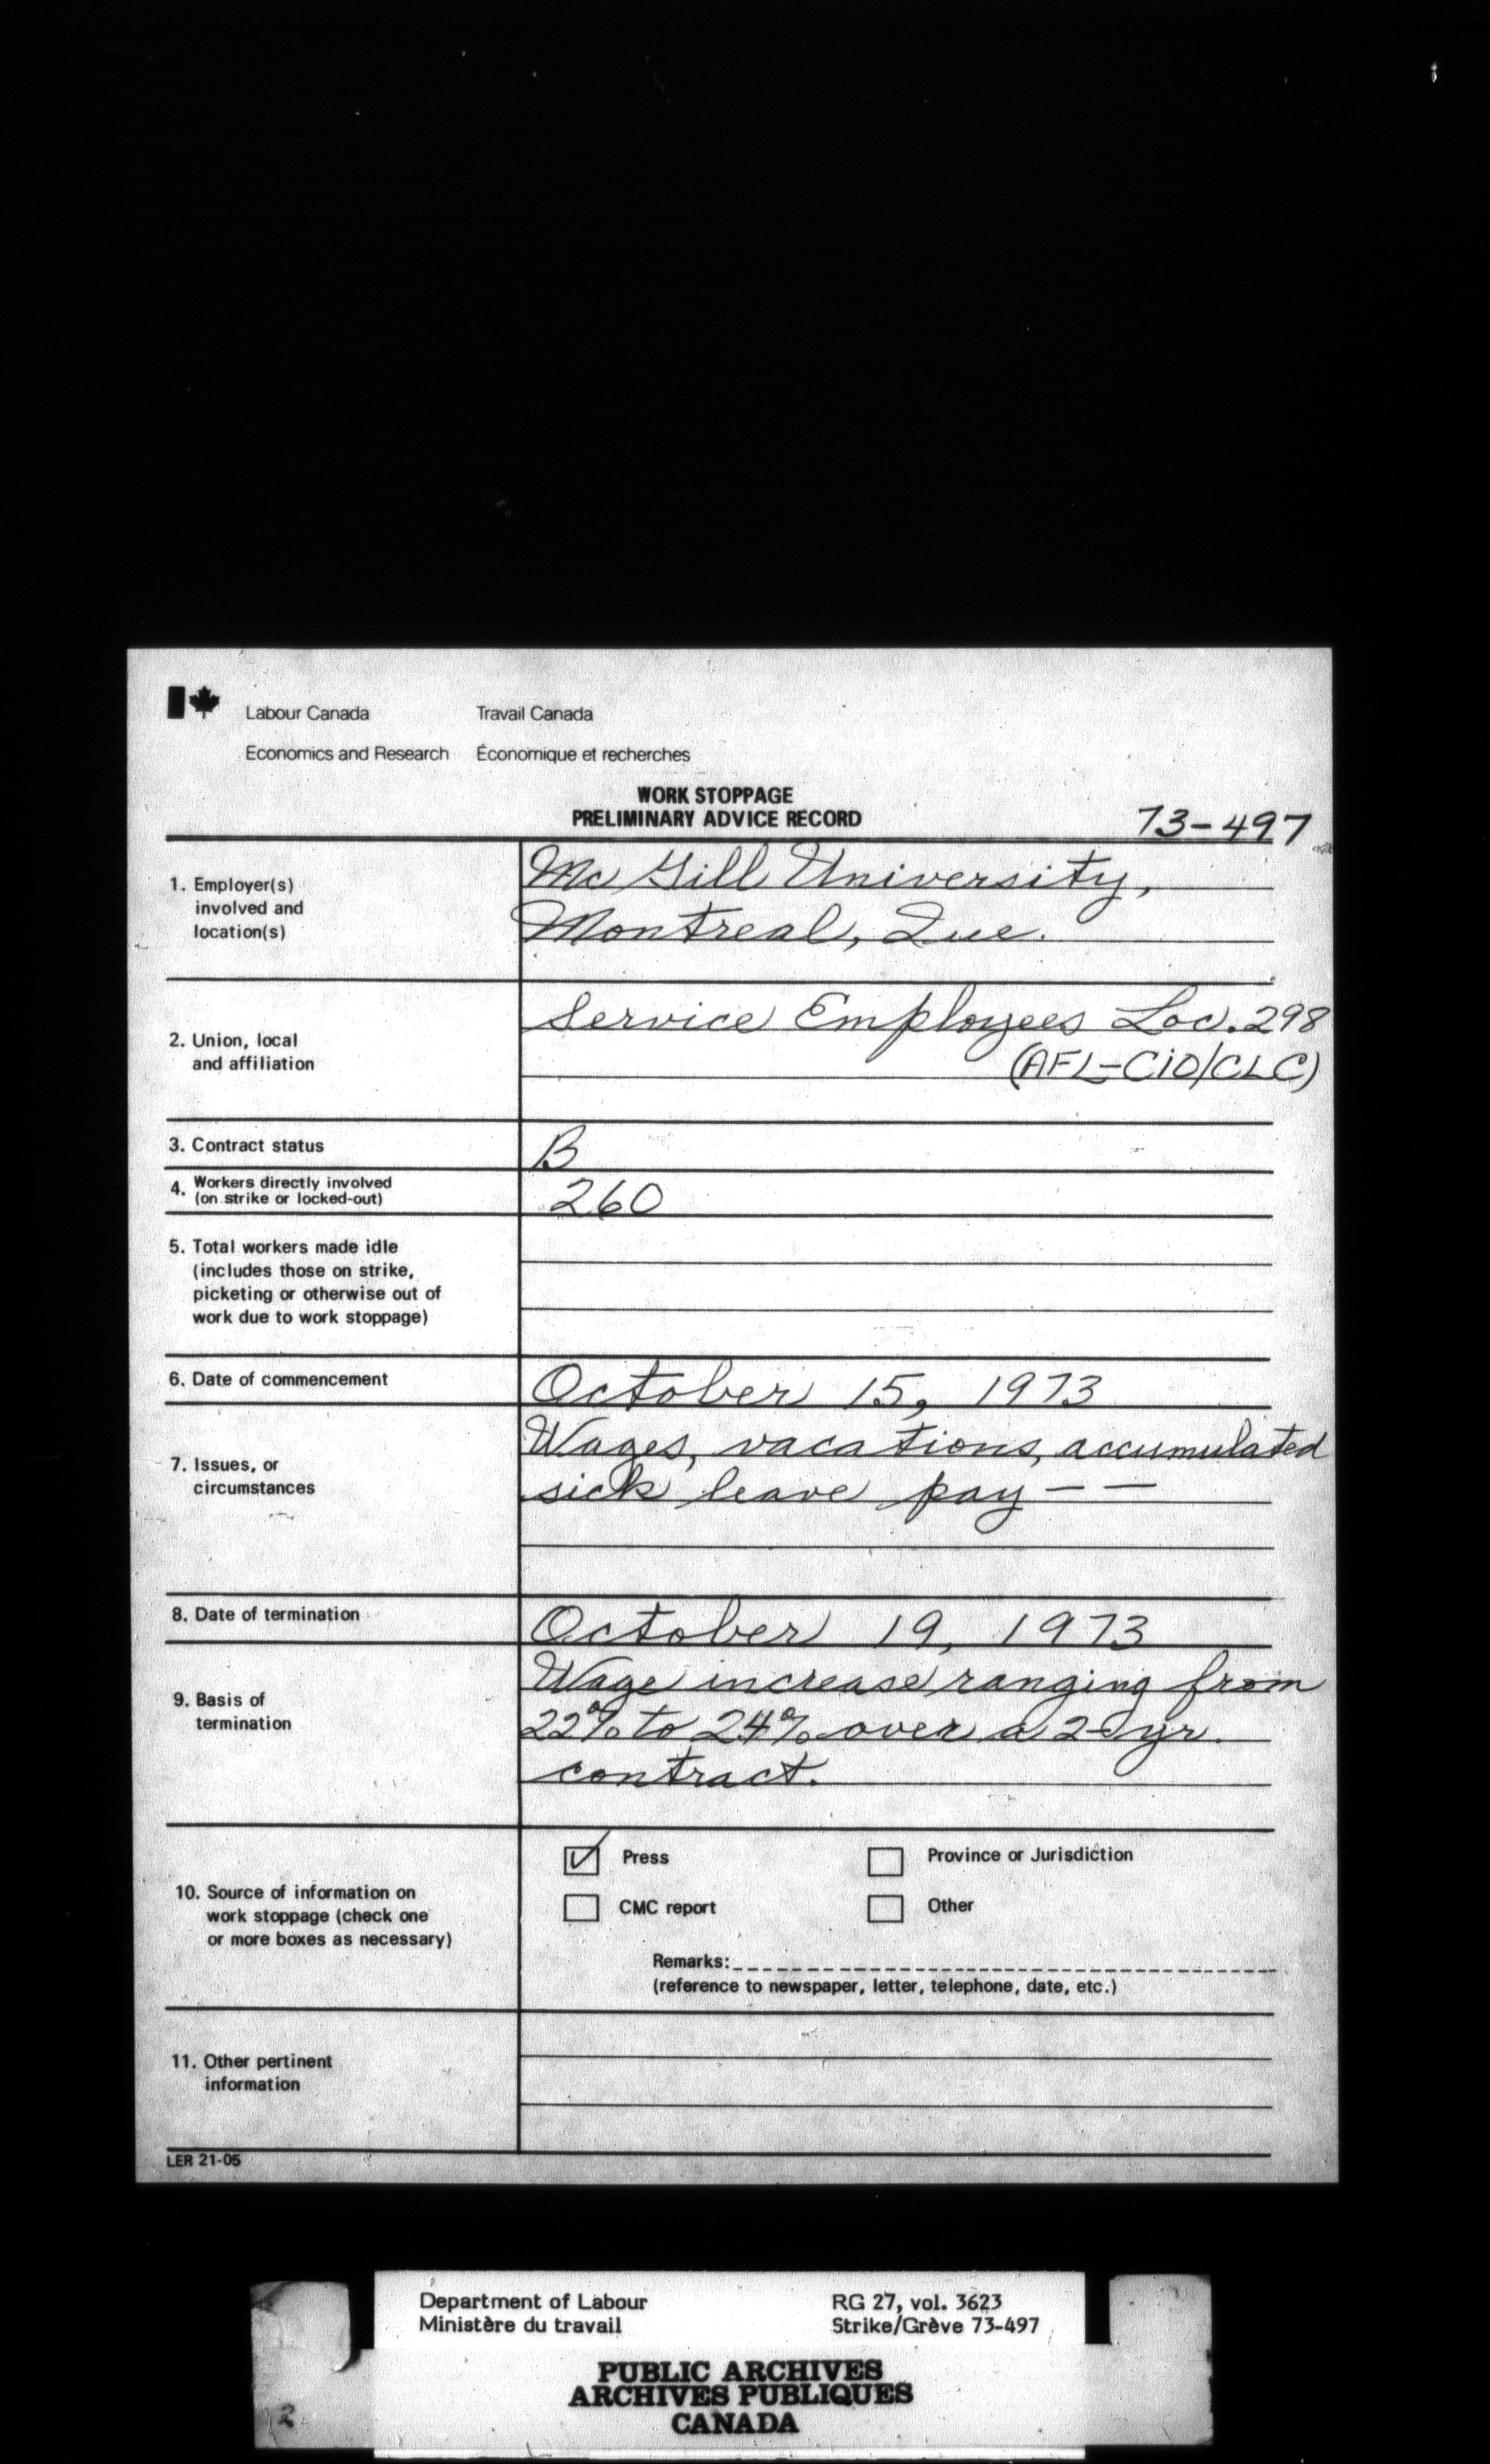 Labour Canada Travail Canada
Economics and Research Économique et recherches
WORK STOPPAGE
PRELIMINARY ADVICE RECORD
73-497
1. Employer(s) involved and location(s)
McGill University,
Montreal, Que.
2. Union, local and affiliation
Service Employees Loc. 298
(AFL-CIO/CLC)
3. Contract status
B
4. Workers directly involved (on strike or locked-out)
260
5. Total workers made idle
(includes those on strike,
picketing or otherwise out of
work due to work stoppage)
6. Date of commencement
October 15, 1973
7. Issues, or circumstances
Wages, vacations, accumulated
sick leave pay — —
8. Date of termination
October 19, 1973
9. Basis of termination
Wage increase ranging from
22% to 24% over a 2-yr.
contract.
10. Source of information on
work stoppage (check one
or more boxes as necessary)
Press Province or Jurisdiction
CMC report Other
Remarks:
(reference to newspaper, letter, telephone, date, etc.)
11. Other pertinent
information
LER 21-05
Department of Labour RG 27, vol. 3623
Ministère du travail Strike/Grève 73-497
PUBLIC ARCHIVES
ARCHIVES PUBLIQUES
CANADA
2